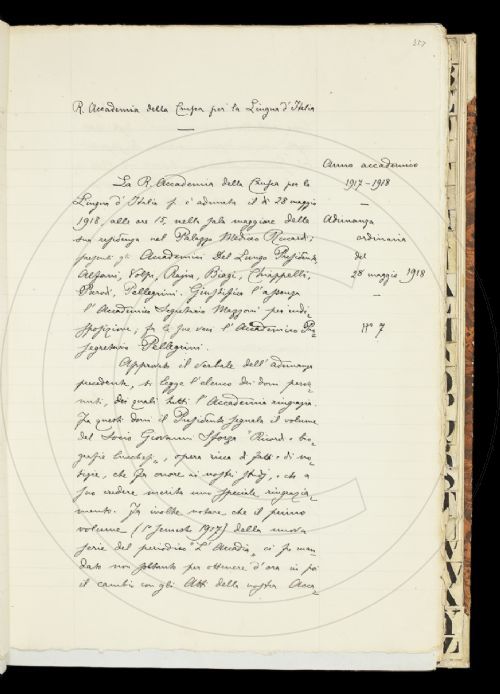 257
R. Accademia della Crusca per la Lingua d'Italia
Anno accademico
1917-1918
Adunanza
ordinaria
del
28 maggio 1918
N° 7
La R. Accademia della Crusca per la
Lingua d'Italia si è adunata il dì 28 maggio
1918 alle ore 15, nella sala maggiore della
sua residenza nel Palazzo Mediceo Riccardi;
presenti gli Accademici Del Lungo Presidente
Alfani, Volpi, Rajna, Biagi, Chiappelli,
Parodi, Pellegrini. Giustifica l'assenza
l'Accademico Segretario Mazzoni per indi-
sposizione; fa le sue veci l'Accademico Pro-
segretario Pellegrini.
Approvato il verbale dell'adunanza
precedente, si legge l'elenco dei doni perve-
nuti, dei quali tutti l'Accademia ringrazia.
Fra questi doni il Presidente segnala il volume
del Socio Giovanni Sforza "Ricordi e bio-
grafie lucchesi", opera ricca di fatti e di no-
tizie, che fa onore ai nostri studj, e che a
suo credere merita uno speciale ringrazia-
mento. Fa inoltre notare che il primo
volume (1° semestre 1917) della nuova
serie del periodico "L'Arcadia" ci fu man-
dato non soltanto per ottenere d'ora in poi
il cambio con gli Atti della nostra Acca-